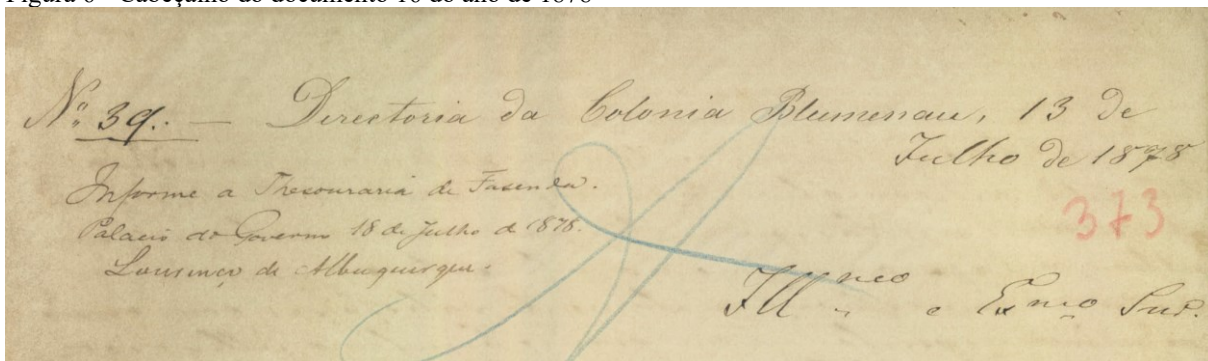 Figura 6 - Cabeçalho do documento 16 do ano de 1878
Nº 39. — Directoria da Colonia Blumenau, 13 de
Julho de 1878
Informe a Thesouraria de Fasenda.
Palacio do Governo 18 de Julho de 1878.
Lourenço de Albuquerque.
373
Illmo e Exmo Snr.